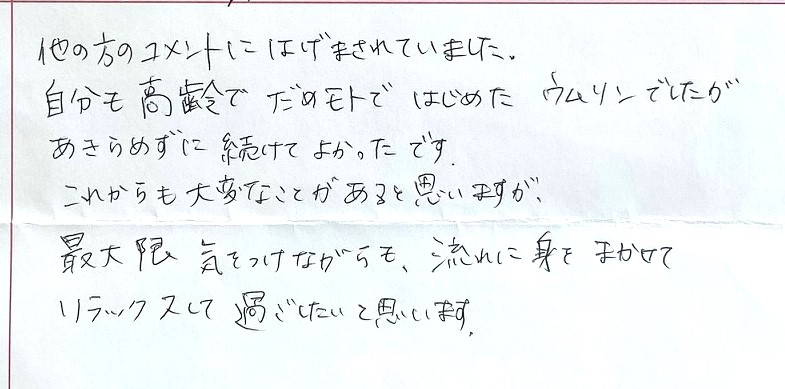 他の方のコメントにはげまされていました。
自分も高齢でだめモトではじめたウムリンでしたが
あきらめずに続けてよかったです.
これからも大変なことがあると思いますが、
最大限気をつけながらも、流れに身をまかせて
リラックスして過ごしたいと思います.